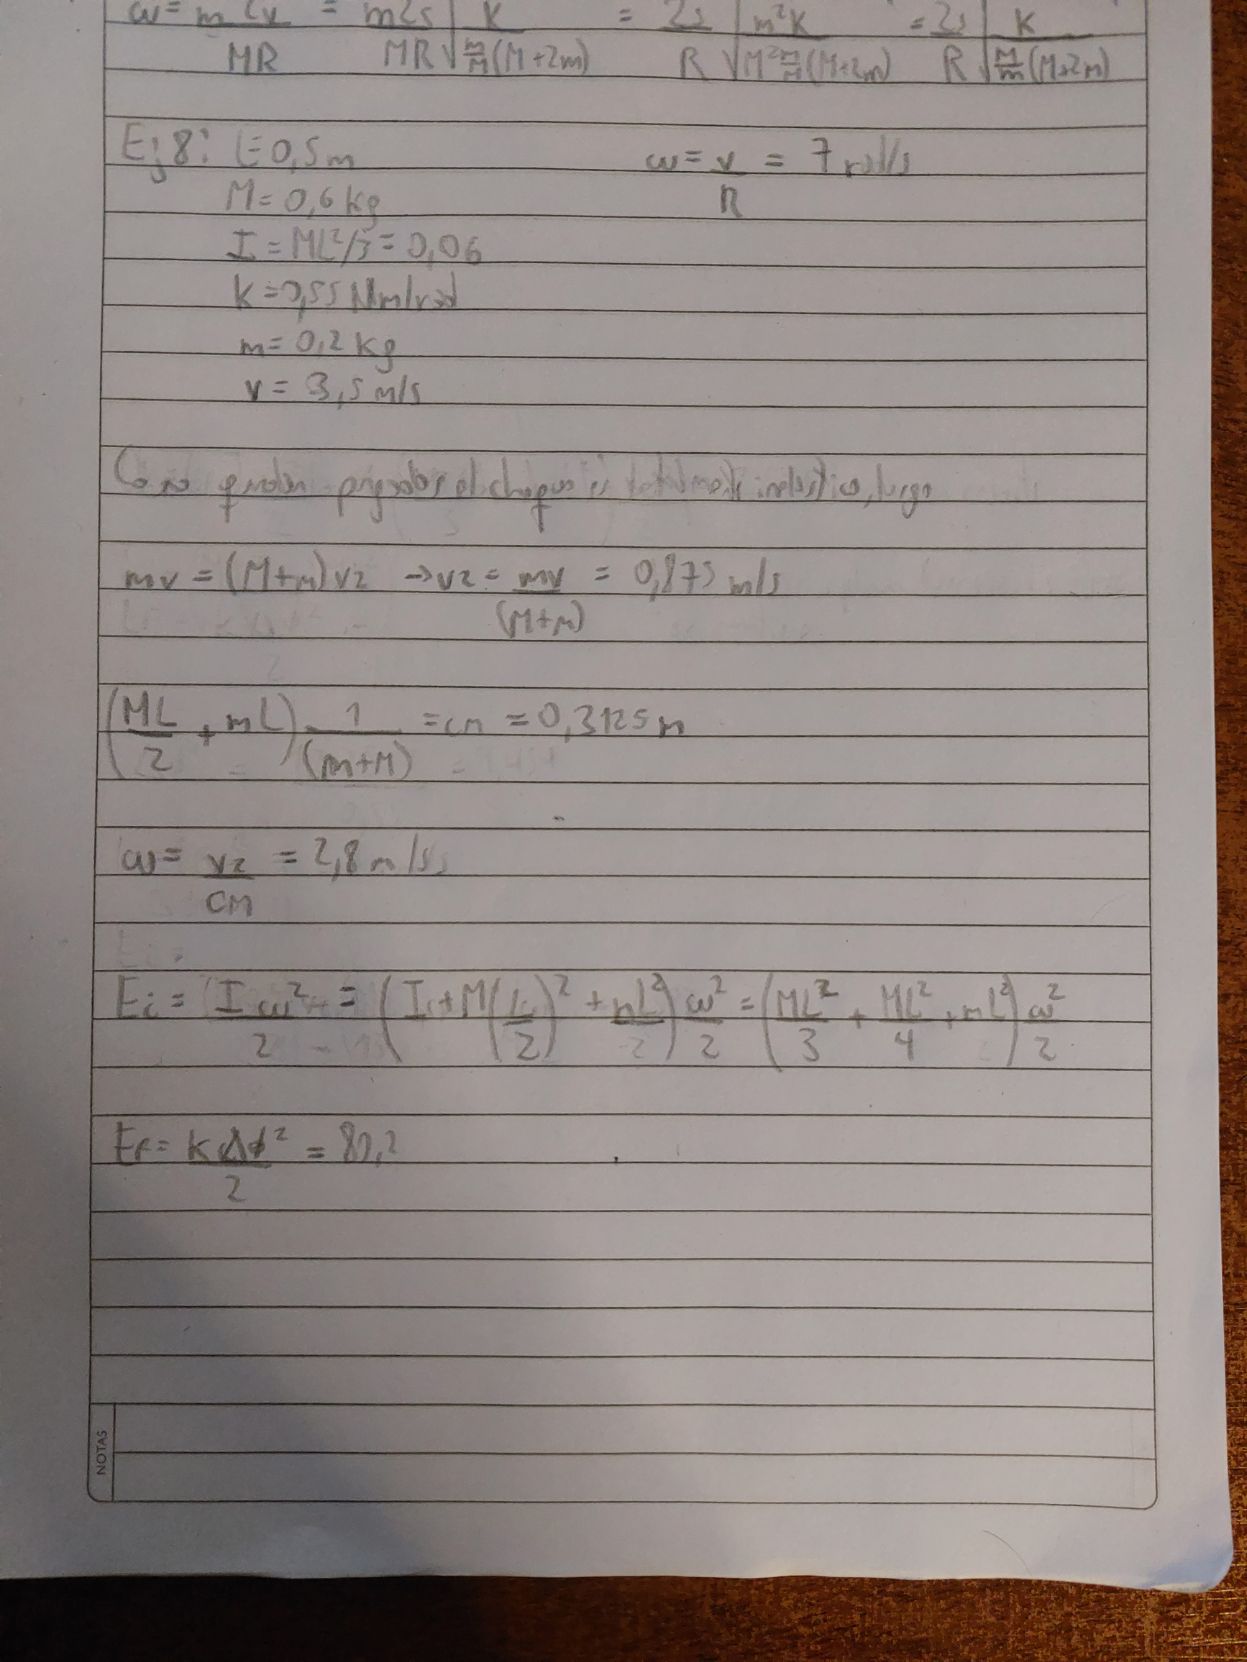 ω = m 2v / MR = m2s / MR √(K / (m/M (M+2m))) = 2s / R √(m²K / (M² m/M (M+2m))) = 2s / R √(K / (M/m (M+2m)))
Ej 8: L=0,5m ω = v/R = 7 rad/s
M = 0,6 kg
I = ML²/3 = 0,06
K = 0,55 Nm/rad
m = 0,2 kg
v = 3,5 m/s
Como quedan pegados el choque es totalmente inelastico, luego
mv = (M+m)v2 → v2 = mv / (M+m) = 0,875 m/s
(ML/2 + mL) 1/(m+M) = CM = 0,3125 m
ω = v2/CM = 2,8 m/s
Ei = I ω²/2 = (I + M(L/2)² + mL²/2) ω²/2 = (ML²/3 + ML²/4 + mL²) ω²/2
Ef = KΔϕ²/2 = 80,2
NOTAS